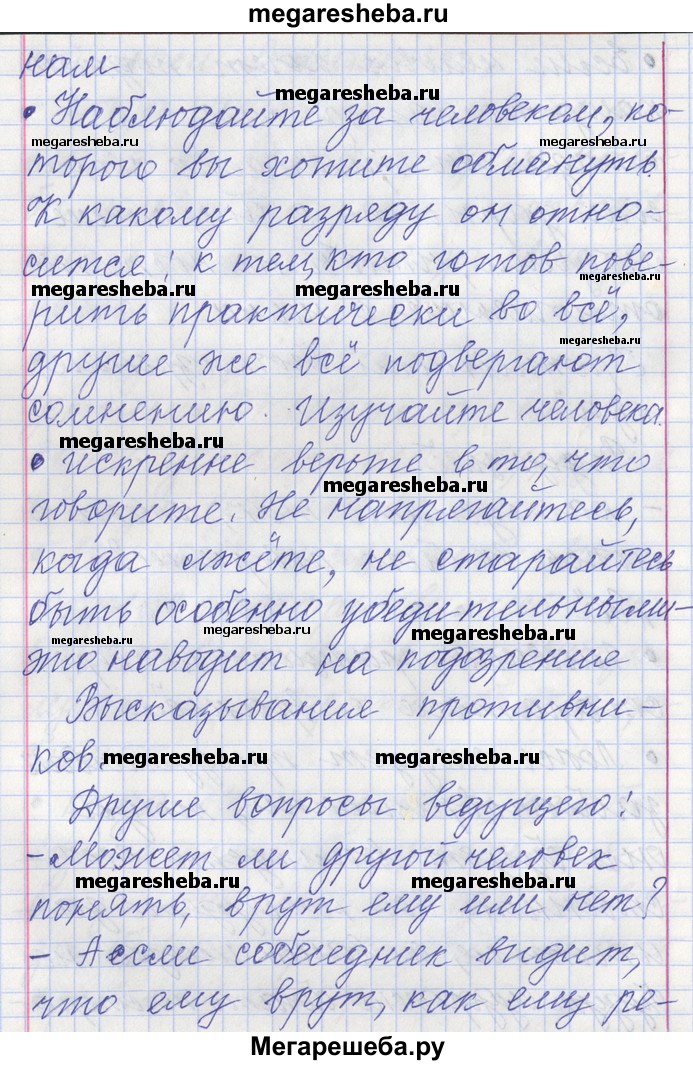 megaresheba.ru
нам
megaresheba.ru
• Наблюдайте за человеком, ко-
megaresheba.ru megaresheba.ru
торого вы хотите обмануть.
К какому разряду он отно-
сится: к тем, кто готов пове-
megaresheba.ru megaresheba.ru megaresheba.ru
рить практически во всё,
megaresheba.ru
другие же всё подвергают
сомнению. Изучайте человека.
megaresheba.ru
• искренне верьте в то, что
megaresheba.ru
говорите. Не напрягайтесь,
когда лжёте, не старайтесь
быть особенно убедительными-
megaresheba.ru megaresheba.ru megaresheba.ru
это наводит на подозрения
Высказывания противни-
ков. megaresheba.ru megaresheba.ru
Другие вопросы ведущего:
- Может ли другой человек
megaresheba.ru megaresheba.ru
понять, врут ему или нет?
- А если собеседник видит,
что ему врут, как ему ре-
Мегарешеба.ру